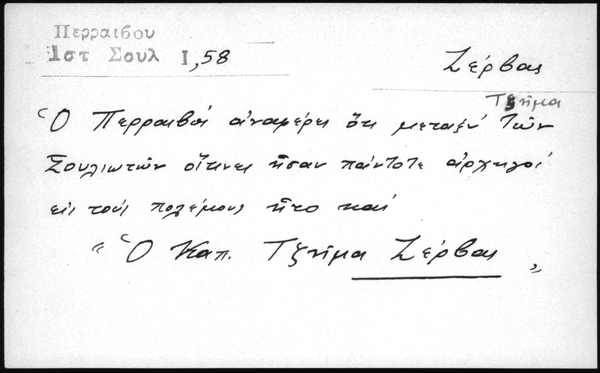 Περραιβου
Ιστ Σουλ Ι, 58
Ζέρβας
Τζήμα
Ὁ Περραιβός ἀναφέρει ὅτι μεταξύ τῶν
Σουλιωτῶν οἵτινες ἦσαν πάντοτε ἀρχηγοί
εἰς τούς πολέμους ἦτο καί
" Ὁ Καπ. Τζήμα Ζέρβας "